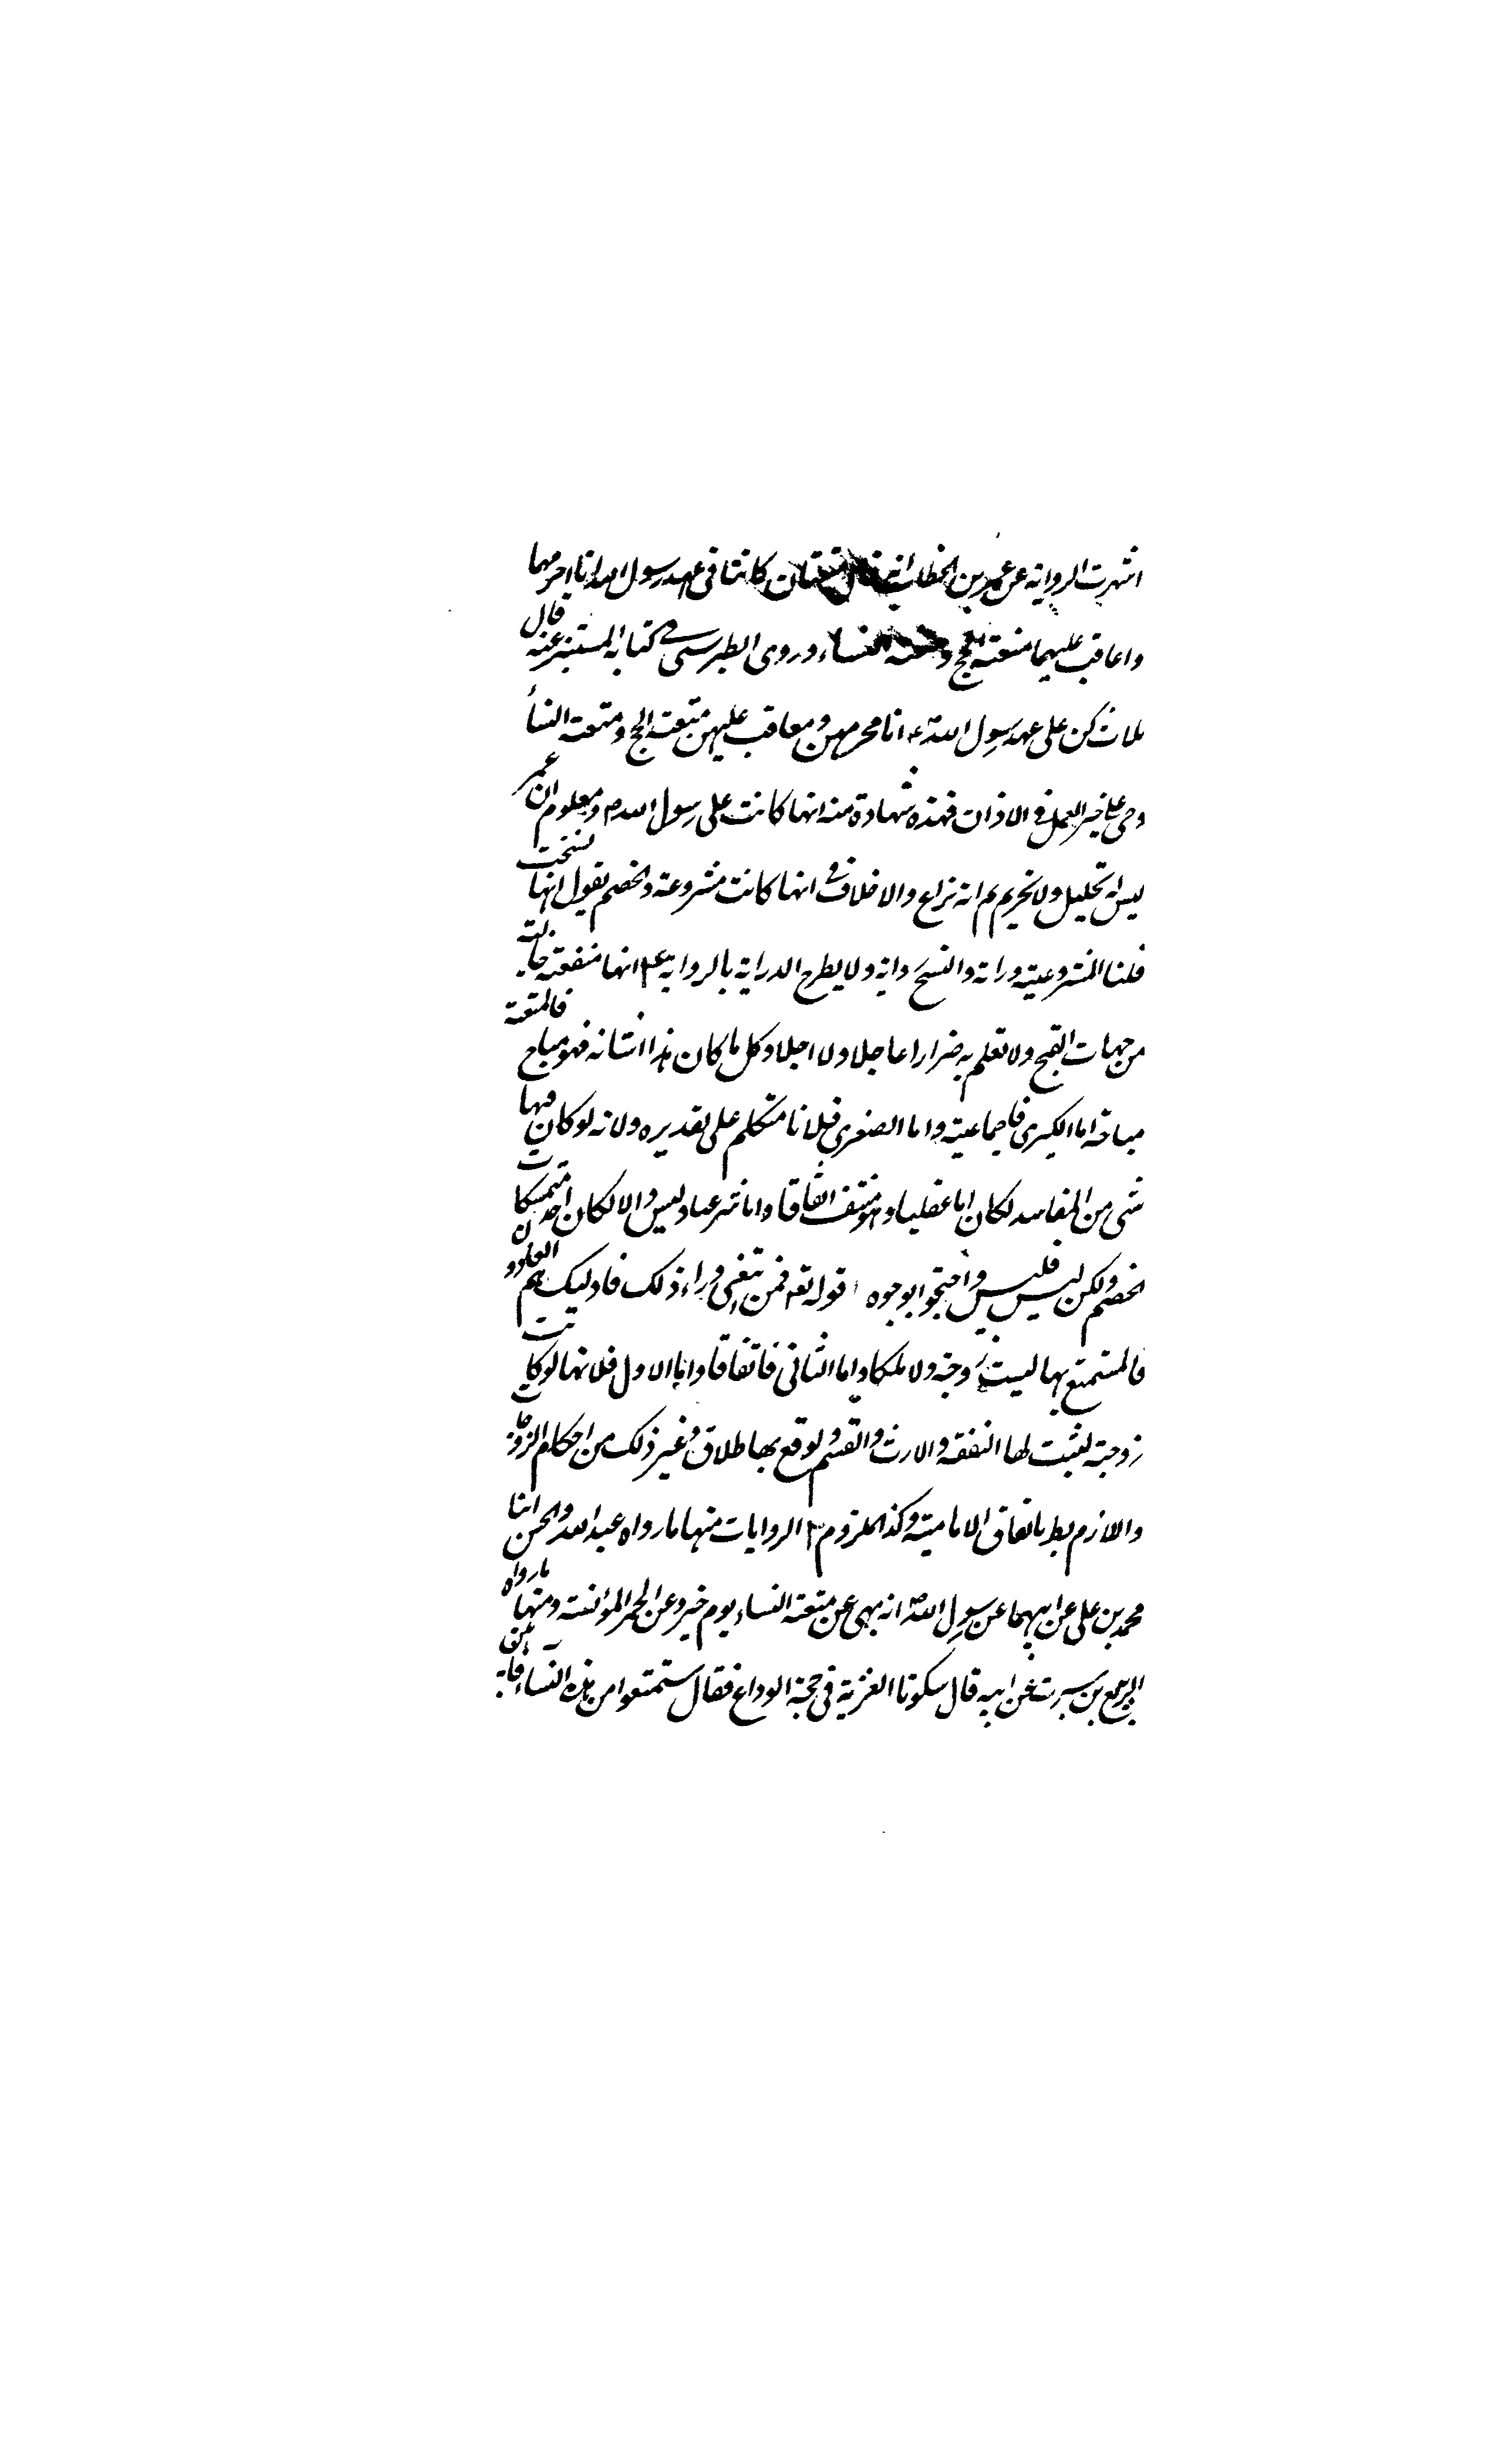 اشهرت الرواية عن عمر بن الخطاب انه قال متعتان كانتا فى عهد رسول الله انا احرمهما
واعاقب عليهما متعة الحج ومتعة النساء وروى الطبرسى فى كتابه المستنير عنه قال
ثلاث كن على عهد رسول الله انا محرمهن ومعاقب عليهن متعة الحج ومتعة النسأ
وحى على خير العمل فى الاذان فهذه شهادة منه انها كانت على رسول الله ومعلوم ان عمر
ليس له تحليل ولا تحريم م انه نزاع والاخلاف فى انها كانت مشروعة والخصم يقول انها نسخت
قلنا المشروعية دراية والنسخ رواية ولا يطرح الدراية بالرواية انها منفعة خالية
من جهات القبح ولا تعلم به ضرارا عاجلا ولا اجلا وكل ما كان هذا شانه فهو مباح فالمتعة
مباحة اما الكبرى فاجماعية واما الصغرى فلانا متكلم على تقديره ولانه لو كان فيها
شى من المفاسد لكان اما عقليا وهو منتف اتفاقا واما شرعيا وليس والا لكان احد متمسكات
الخصم ولكن ليس فليس واحتجوا بوجوه ا قوله تعه فمن ابتغى وراء ذلك فاوليك هم العادون
فالمستمتع بها ليست زوجة ولا ملكا واما الثانى فاتفاقا واما الاول فلانها لو كانت
زوجة لثبت لها النفقه والارث والقسم ولوقع بها طلاق وغير ذلك من احكام الزوجات
واللازم بط باتفاق الامامية وكذا الملزوم ٢ الروايات منها ما رواه عبد الله والحسن ابنا
محمد بن على عن ابيهما عن رسول الله ص انه نهى عن متعة النساء يوم خيبر وعن الحمر المؤنسة ومنها ما رواه
الربيع بن سبرت عن ابيه قال شكونا العزبة فى حجة الوداع فقال استمتعوا من هذه النساء